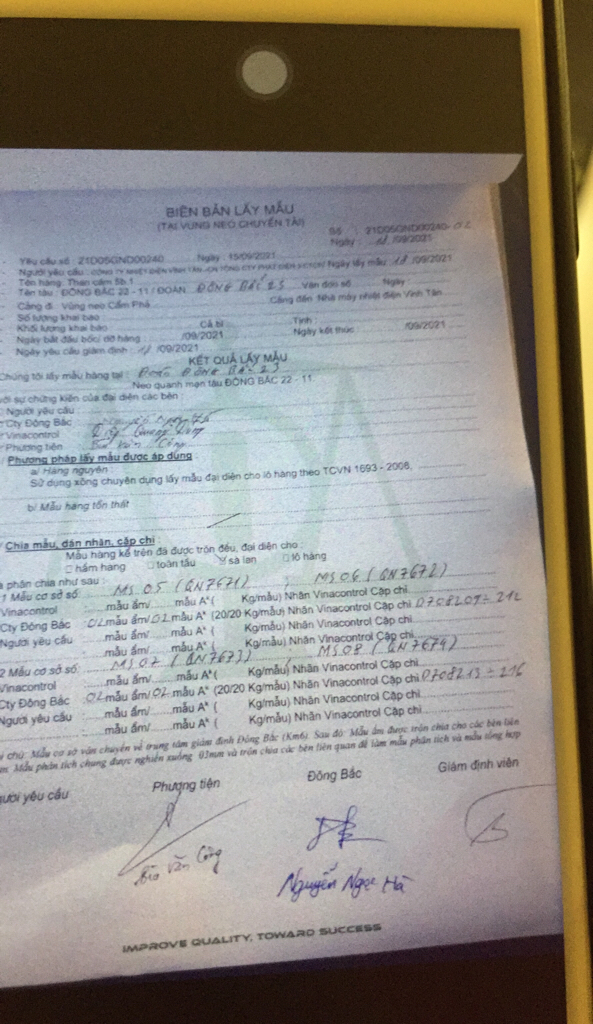 BIÊN BẢN LẤY MẪU
(TẠI VÙNG NEO CHUYỂN TẢI)
Số : 21D05GND00240-02
Ngày : 18/09/2021
Yêu cầu số : 21D05GND00240 Ngày : 15/09/2021
Người yêu cầu : CÔNG TY NHIỆT ĐIỆN VĨNH TÂN Ngày lấy mẫu : 18/09/2021
Tên hàng: Than cám 5b.1
Tên tàu : ĐÔNG BẮC 22 - 11 / ĐOÀN ĐÔNG BẮC 23 Vận đơn số Ngày
Cảng đi : Vùng neo Cẩm Phả Cảng đến : Nhà máy nhiệt điện Vĩnh Tân
Số lượng khai báo
Khối lượng khai báo Cả bì : Tịnh :
Ngày bắt đầu bốc/ dỡ hàng : /09/2021 Ngày kết thúc /09/2021
Ngày yêu cầu giám định : /09/2021
KẾT QUẢ LẤY MẪU
Chúng tôi lấy mẫu hàng tại : ĐOÀN ĐÔNG BẮC 23
Neo quanh mạn tàu ĐÔNG BẮC 22 - 11
với sự chứng kiến của đại diện các bên :
Người yêu cầu
Cty Đông Bắc
Vinacontrol
Phương tiện Văn Công
Phương pháp lấy mẫu được áp dụng
a/ Hàng nguyên :
Sử dụng xẻng chuyên dụng lấy mẫu đại diện cho lô hàng theo TCVN 1693 - 2008.
b/ Mẫu hàng tổn thất
Chia mẫu, dán nhãn, cặp chì :
Mẫu hàng kể trên đã được trộn đều, đại diện cho :
hầm hàng toàn tàu sà lan lô hàng
phân chia như sau :
1 Mẫu cơ sở số: MS 05 (QN7671) ; MS 06 (QN7672)
Vinacontrol : mẫu ẩm/ mẫu A* ( Kg/mẫu) Nhãn Vinacontrol Cặp chì
Cty Đông Bắc : 02 mẫu ẩm/ 02 mẫu A* (20/20 Kg/mẫu) Nhãn Vinacontrol Cặp chì 0708209 ÷ 212
Người yêu cầu : mẫu ẩm/ mẫu A* ( Kg/mẫu) Nhãn Vinacontrol Cặp chì
2 Mẫu cơ sở số: MS 07 (QN7673) ; MS 08 (QN7674)
Vinacontrol : mẫu ẩm/ mẫu A* ( Kg/mẫu) Nhãn Vinacontrol Cặp chì
Cty Đông Bắc : 02 mẫu ẩm/ 02 mẫu A* (20/20 Kg/mẫu) Nhãn Vinacontrol Cặp chì 0708213 ÷ 216
Người yêu cầu : mẫu ẩm/ mẫu A* ( Kg/mẫu) Nhãn Vinacontrol Cặp chì
chú: Mẫu cơ sở vận chuyển về trung tâm giám định Đông Bắc (Km6). Sau đó: Mẫu ẩm được trộn chia cho các bên liên
Mẫu phân tích chung được nghiền xuống 03mm và trộn chia các bên liên quan để làm mẫu phân tích và mẫu tổng hợp
người yêu cầu Phương tiện Đông Bắc Giám định viên
Văn Công
Nguyễn Ngọc Hà
IMPROVE QUALITY, TOWARD SUCCESS